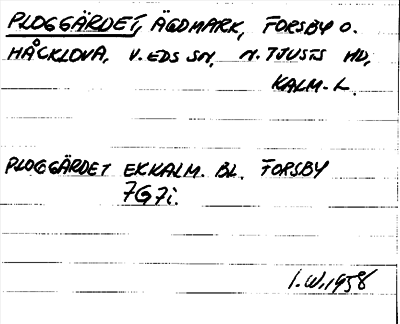 PLOGGÄRDET, ÄGDMARK, FORSBY O.
HÅCKLOVA, V. EDS SN, N. TJUSTS HD,
KALM. L.
PLOGGÄRDET EK KALM. BL. FORSBY
7G7i.
I.W. 1958